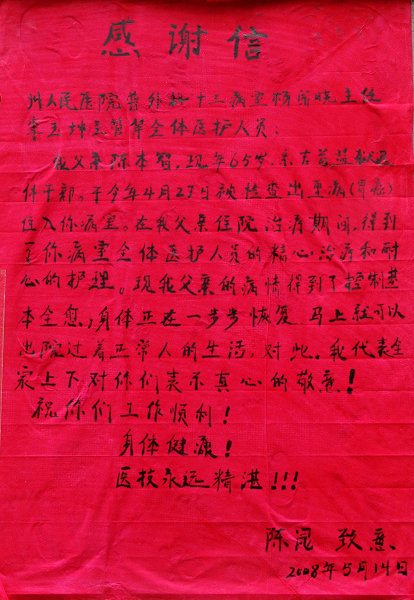 感谢信
州人民医院普外科十三病室杨闻晓主任
宋玉坤主管等全体医护人员:
我父亲陈本智,现年65岁,系古丈县
休干部。于今年4月27日被检查出重病(胃癌)
住入你病室。在我父亲住院治疗期间,得到
了你病室全体医护人员的精心治疗和耐
心的护理。现我父亲的病情得到了控制基
本全愈,身体正在一步步恢复,马上就可以
出院过着正常人的生活,对此。我代表全
家上下对你们表示真心的敬意!
祝你们工作顺利!
身体健康!
医技永远精湛!!!
陈 致意
2008年5月14日